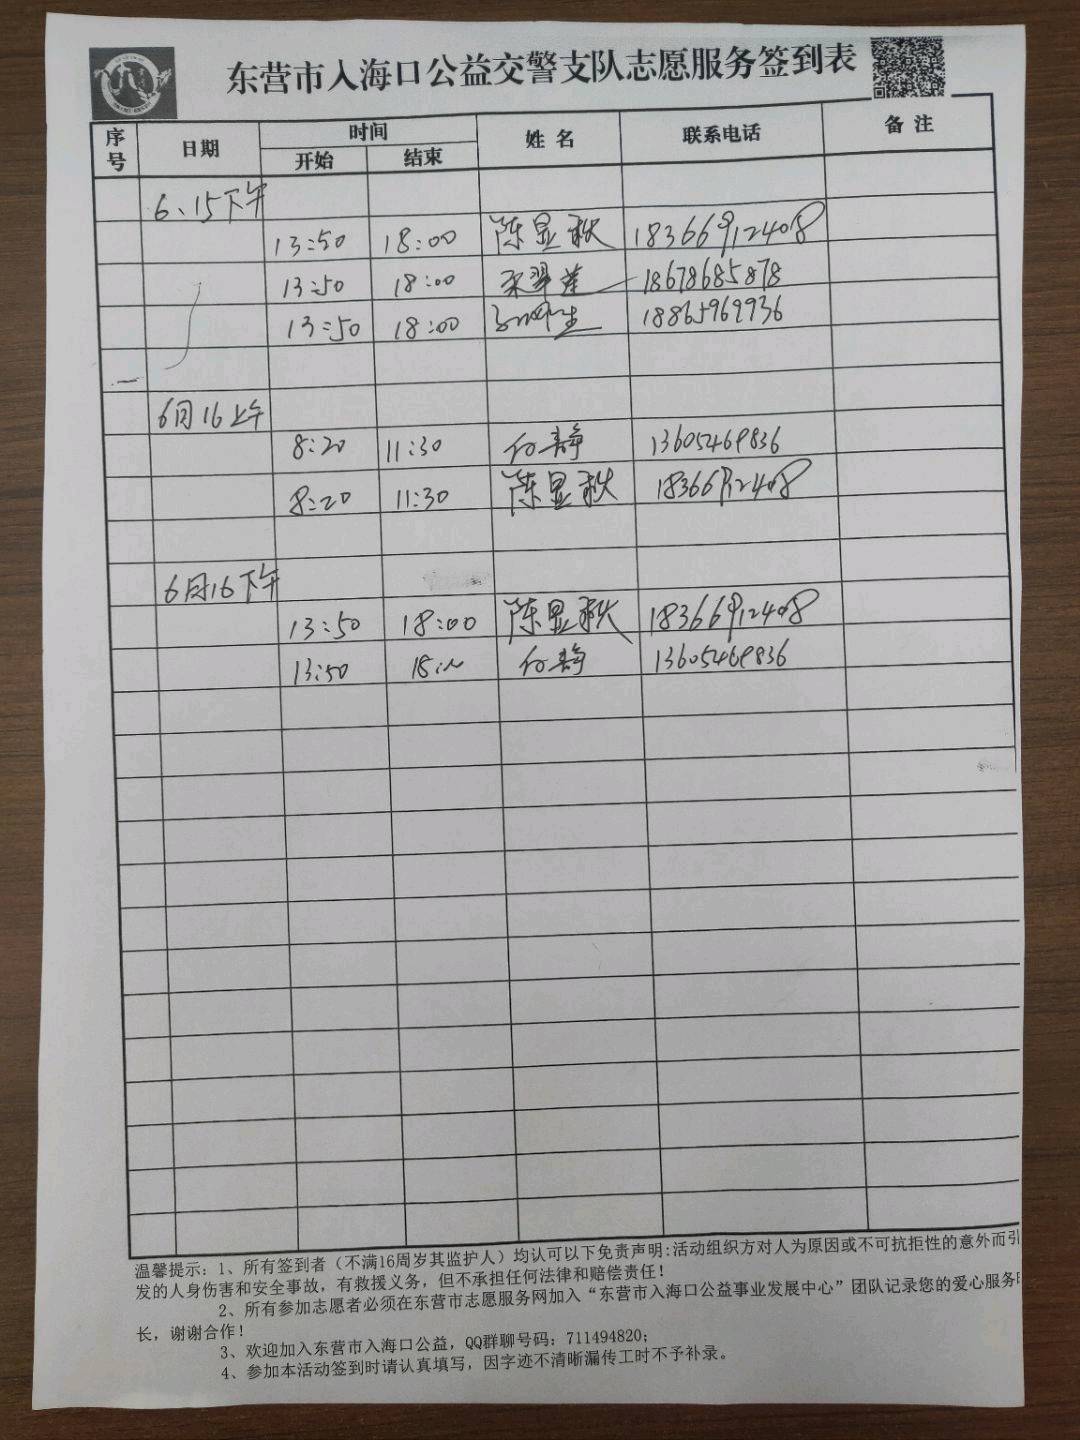 东营市入海口公益交警支队志愿服务签到表
序号 日期 时间 姓名 联系电话 备注
开始 结束
6、15下午
13:50 18:00 陈显秋 18366912408
13:50 18:00 18678685878
13:50 18:00 18865969936
6月16上午
8:20 11:30 付静 13605469836
8:20 11:30 陈显秋 18366912408
6月16下午
13:50 18:00 陈显秋 18366912408
13:50 付静 13605469836
温馨提示:1、所有签到者(不满16周岁其监护人)均认可以下免责声明:活动组织方对人为原因或不可抗拒性的意外而引
发的人身伤害和安全事故,有救援义务,但不承担任何法律和赔偿责任!
2、所有参加志愿者必须在东营市志愿服务网加入“东营市入海口公益事业发展中心”团队记录您的爱心服务时
长,谢谢合作!
3、欢迎加入东营市入海口公益,QQ群聊号码:711494820;
4、参加本活动签到时请认真填写,因字迹不清晰漏传工时不予补录。